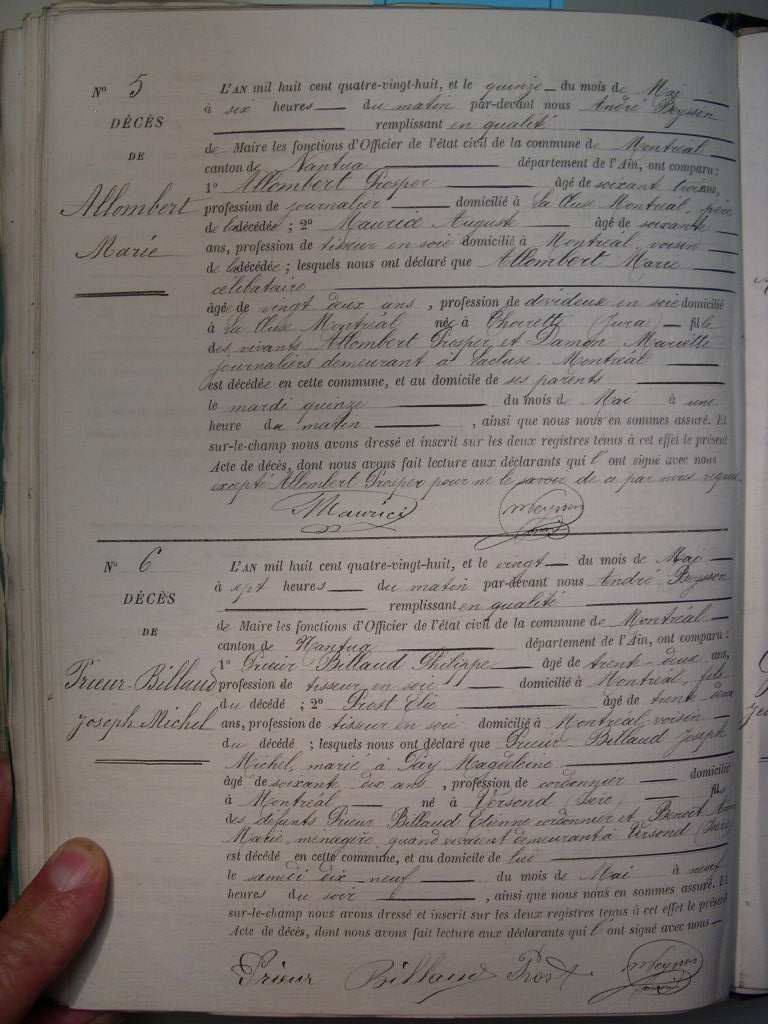 N° 5
DÉCÈS
DE
Allombert
Marie
L'AN mil huit cent quatre-vingt-huit, et le quinze du mois de Mai
à six heures du matin par-devant nous André Beyssin
remplissant en qualité
de Maire les fonctions d'Officier de l'état civil de la commune de Montréal
canton de Nantua département de l'Ain, ont comparu :
1° Allombert Prosper âgé de soixant trois ans,
profession de journalier domicilié à La Cluse Montréal, père
de la décédée ; 2° Maurice Auguste âgé de soixante
ans, profession de tisseur en soie domicilié à Montréal, voisin
de la décédée ; lesquels nous ont déclaré que Allombert Marie
célibataire
âgée de vingt deux ans, profession de dévideuse en soie domicilié
à La Cluse Montréal née à (Jura) fille
des vivants Allombert Prosper et Damon Mariette
journaliers demeurant à Lacluse Montréal
est décédée en cette commune, et au domicile de ses parents
le mardi quinze du mois de Mai à une
heure du matin, ainsi que nous nous en sommes assuré. Et
sur-le-champ nous avons dressé et inscrit sur les deux registres tenus à cet effet le présent
Acte de décès, dont nous avons fait lecture aux déclarants qui l'ont signé avec nous
excepté Allombert Prosper pour ne le savoir de ce par nous requis
Maurice
N° 6
DÉCÈS
DE
Prieur-Billaud
Joseph Michel
L'AN mil huit cent quatre-vingt-huit, et le vingt du mois de Mai
à sept heures du matin par-devant nous André Beyssin
remplissant en qualité
de Maire les fonctions d'Officier de l'état civil de la commune de Montréal
canton de Nantua département de l'Ain, ont comparu :
1° Prieur Billaud Philippe âgé de trente-deux ans,
profession de tisseur en soie domicilié à Montréal, fils
du décédé ; 2° Prost Elie âgé de trente deux
ans, profession de tisseur en soie domicilié à Montréal, voisin
du décédé ; lesquels nous ont déclaré que Prieur-Billaud Joseph
Michel, marié à Magdeleine
âgé de soixante dix ans, profession de cordonnier domicilié
à Montréal né à Versond (Isère) fils
des défunts Prieur Billaud Etienne cordonnier et Benoit
Marie, ménagère, quand vivaient demeurant à Versond (Isère)
est décédé en cette commune, et au domicile de lui
le samedi dix-neuf du mois de Mai à neuf
heures du soir, ainsi que nous nous en sommes assuré. Et
sur-le-champ nous avons dressé et inscrit sur les deux registres tenus à cet effet le présent
Acte de décès, dont nous avons fait lecture aux déclarants qui l'ont signé avec nous
Prieur Billaud Prost